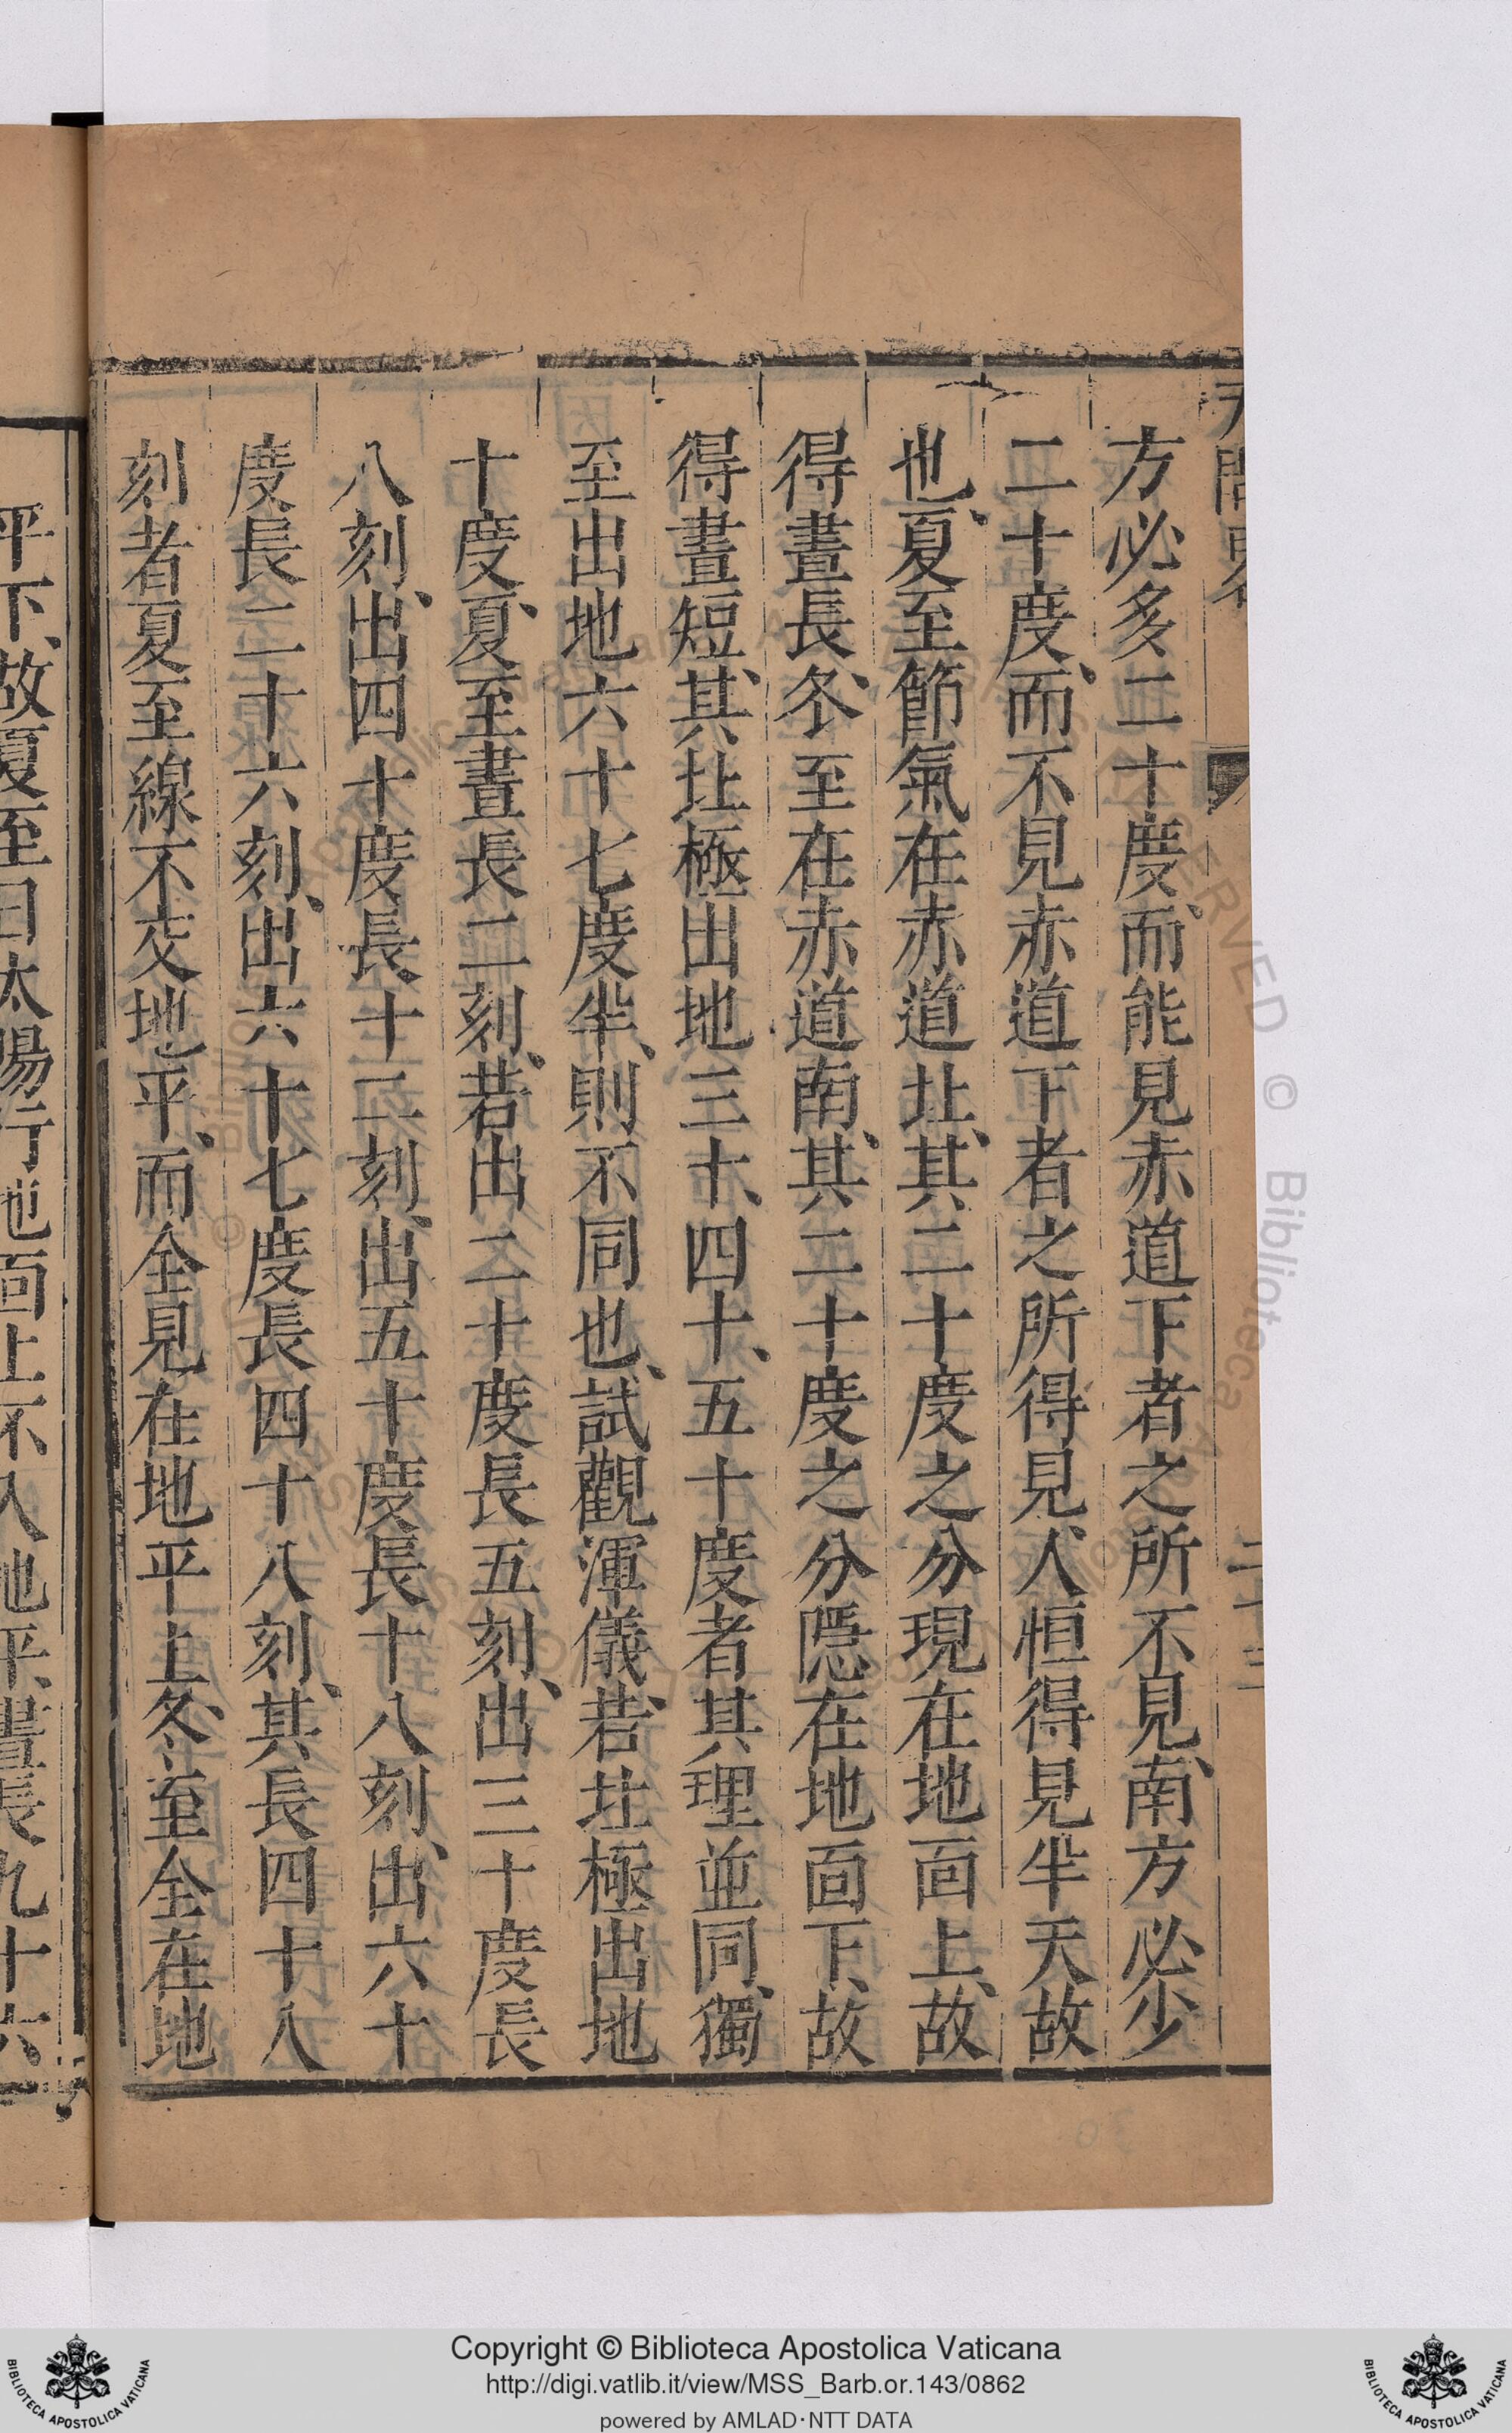 方必多二十度、而能見赤道下者之所不見、南方必少
二十度、而不見赤道下者之所得見、人恒得見半天故
也、夏至節氣在赤道北、其二十度之分現在地面上、故
得晝長、冬至在赤道南、其二十度之分隱在地面下、故
得晝短、其北極出地三十、四十、五十度者其理並同、獨
至出地六十七度半、則不同也、試觀渾儀、若北極出地
十度、夏至晝長二刻、若出二十度長五刻、出三十度長
八刻、出四十度長十二刻、出五十度長十八刻、出六十
度長二十六刻、出六十七度長四十八刻、其長四十八
刻者夏至線不交地平、而全見在地平上、冬至全在地
平下、故夏至日太陽行地面上不入地平、晝長九十六
Copyright © Biblioteca Apostolica Vaticana
http://digi.vatlib.it/view/MSS_Barb.or.143/0862
powered by AMLAD·NTT DATA
BIBLIOTECA APOSTOLICA VATICANA
BIBLIOTECA APOSTOLICA VATICANA